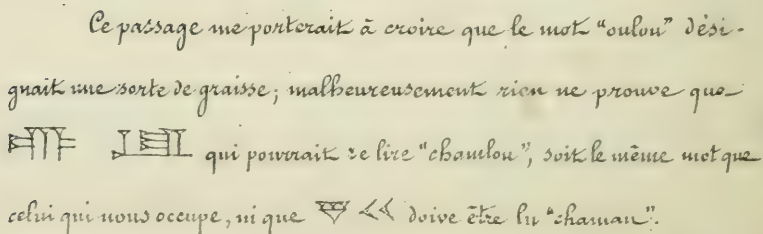 Ce passage me porterait à croire que le mot "oulou" dési-
gnait une sorte de graisse; malheureusement rien ne prouve que
qui pourrait se lire "chamlou", soit le même mot que
celui qui nous occupe, ni que doive être lu "chaman".